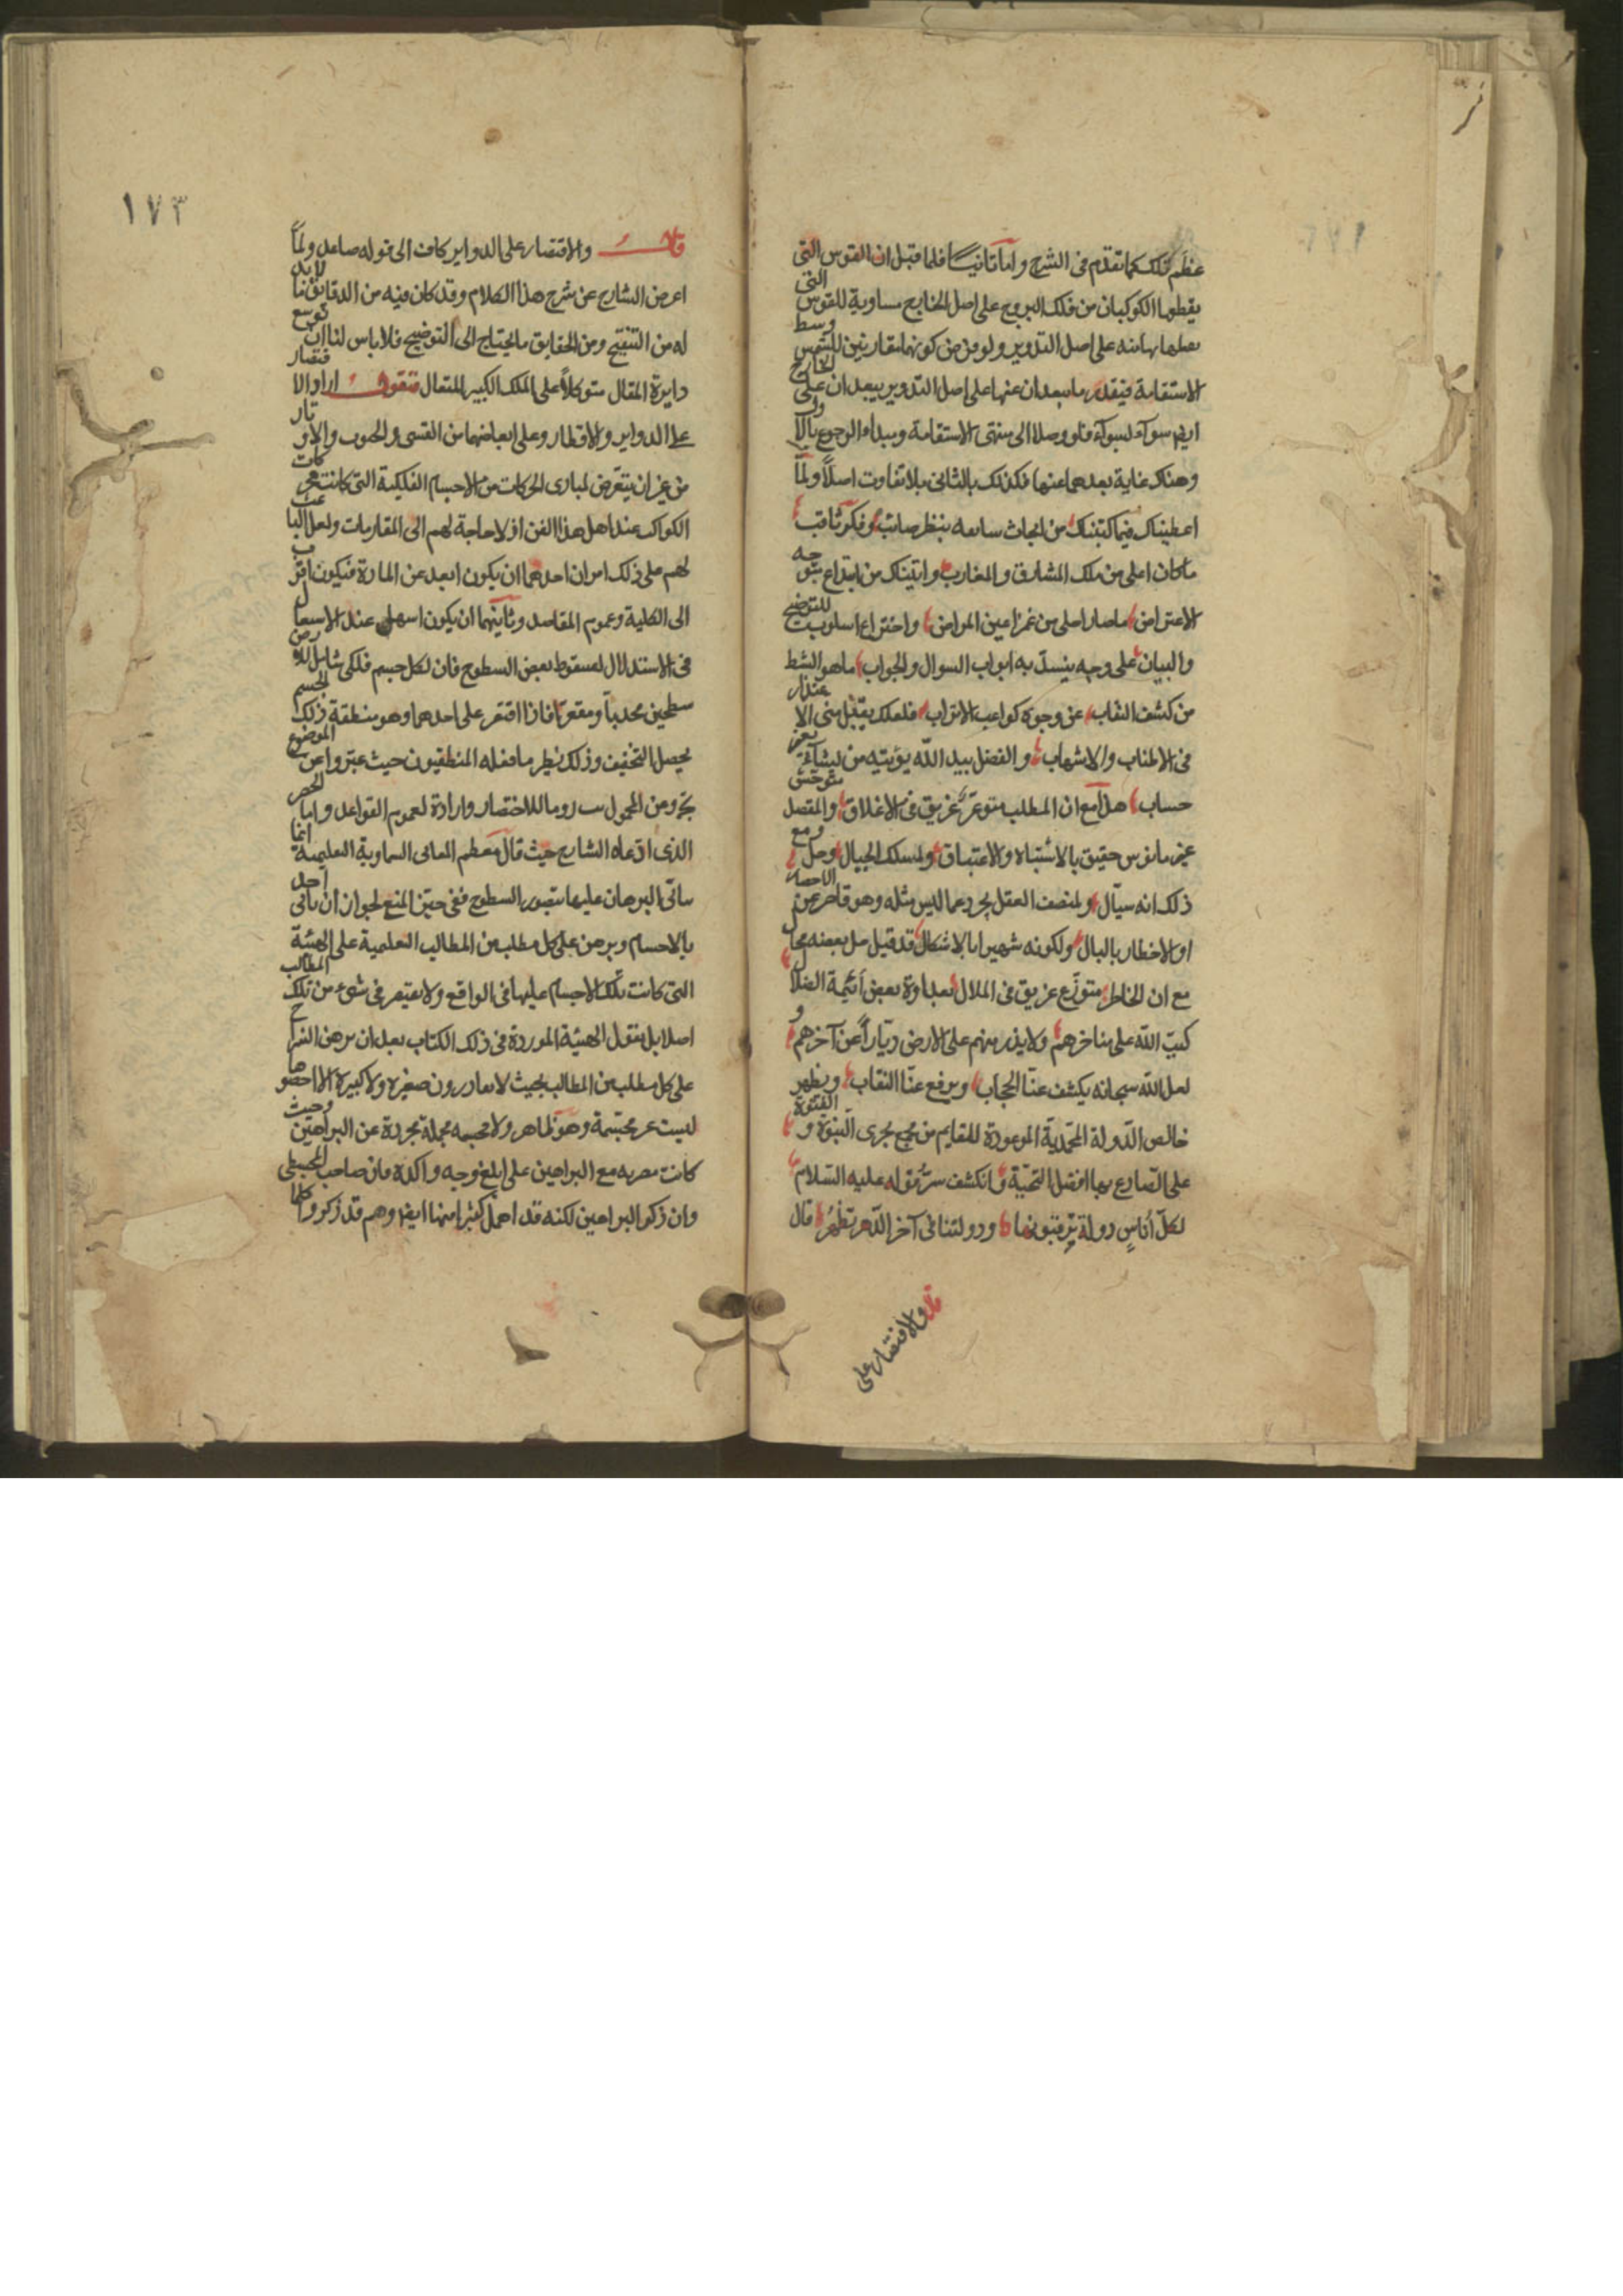 عظم تلك كما تقدم فى الشرح واما ثانيا فلما قيل ان القوس التى
يقطعها الكوكبان من فلك البروج على اصل الخارج مساوية للقوس التى
على اصل التدوير ولو فرض كونهما متقارنين للشمس وسط
الاستقامة فيقدر ما يبعدان عنها على اصل التدوير يبعدان على الخارج
ايضم سوآء لسوآء فلو وصلا الى منتهى الاستقامة ومبدأ الرجوع بالاول
وهناك غاية بعدهما عنها فكذلك بالثانى بلا تفاوت اصلاً ولمّا
اعطيناك فيما كتبناك من ابحاث بنظر صائب وفكر ثاقب
ما كان اعلى من ملك المشارق والمغارب واتيناك من ابتداع توجيه
الاعتراض ما صار احلى من غمز اعين المراض واختراع اسلوب للتوضيح
والبيان على وجه ينسدّ به ابواب السوال والجواب ما هو الشط
من كشف النقاب عن وجوه كواعب الاتراب فلعلك يقبل منى الاعتذار
فى الاطناب والاسهاب والفضل بيد الله يؤتيه من يشآء بغير
حساب هذا مع ان المطلب متوعّر غريق فى الاغلاق والمقصد متوحش
غير مانوس حقيق بالاشتباه والاعتياق ولمسلك الجبال وحل ومع
ذلك انه سيّال ولمنصف العقل مجرد عما ليس مثله وهو قاصر عن الاحصاء
او الاخطار بالبال ولكونه شهيرا بالاشكال قد قيل حل بعضه محال
مع ان الخاطر متوزّع غريق فى الملال بعداوة بعض أئمة الضلال
كبّ الله على مناخرهم ولا يذر منهم على الارض ديّاراً عن آخرهم و
لعل الله سبحانه يكشف عنّا الحجاب ويرفع عنّا النقاب ويظهر
خالص الدّولة المحمّدية الموعودة للقايم من مجمع بحرى النبوة و الفتوة
على الصّادع بها افضل التحيّة وانكشف سرّ مقوله عليه السّلام
لكلّ أناسٍ دولة يرقبونها ودولتنا فى آخر الدّهر تظهرُ قال
قال والاقتصار على
١٧٣
قال والاقتصار على الدواير كاف الى قوله صاعد ولمّا
اعرض الشارح عن شرح هذا الكلام وقد كان فيه من الدقايق ما لابد
له من التنقيح ومن الحقايق ما يحتاج الى التوضيح فلا باس لنا ان نوسع
دايرة المقال متوكلاً على الملك الكبير المتعال فنقول اراد الاقتصار
على الدواير والاقطار وعلى ابعاضهما من القسى والجيوب والاوتار
من غير ان يتعرّض لمبادى الحركات من الاجسام الفلكية التى كانت محركات
الكواكب عند اهل هذا الفن اذ لا حاجة لهم الى المقارمات ولعل الباعث
لهم على ذلك امران احدهما ان يكون ابعد عن المادة فيكون اقرب
الى الكلية وعموم المقاصد وثانيهما ان يكون اسهل عند الاسيعال
فى الاستدلال لسقوط بعض السطوح فان لكل جسم فلكى شامل للارض
سطحين محدباً ومقعراً فاذا اقتصر على احدهما وهو منطقة ذلك الجسم
يحصل التخفيف وذلك نظير ما فعله المنطقيون حيث عبّروا عن الموضوع
بج ومن المحمول بـ روما للاختصار وارادة لعموم القواعد واما الحصر
الذى ادّعاه الشارح حيث قال معظم المعانى السماوية التعليمية انما
ساتّى البرهان عليها بتصور السطوح ففى حيّز المنع لجواز ان ياتى احد
بالاجسام ويبرهن على كل مطلب من المطالب التعليمية على الهيئة
التى كانت تلك الاجسام عليها فى الواقع ولا يفتقر فى شىء من تلك المطالب
اصلا بل نقول الهيئة الموردة فى ذلك الكتاب بعد ان برهن الشراح
على كل مطلب من المطالب بحيث لا يغادرون صغيرة ولا كبيرة الا احصوها
ليست غير مجسّمة وهو ظاهر ولا مجملة مجردة عن البراهين وحيث
كانت مع البراهين على ابلغ وجه واكده فان صاحب المجسطى
وان ذكر البراهين لكنه قد اهمل كثيرا منها ايضم وهم قد ذكروا كلها